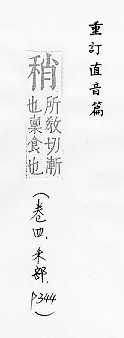 重訂直音篇
稍
所敎切漸
也稟食也
(卷四.禾部.
P344)